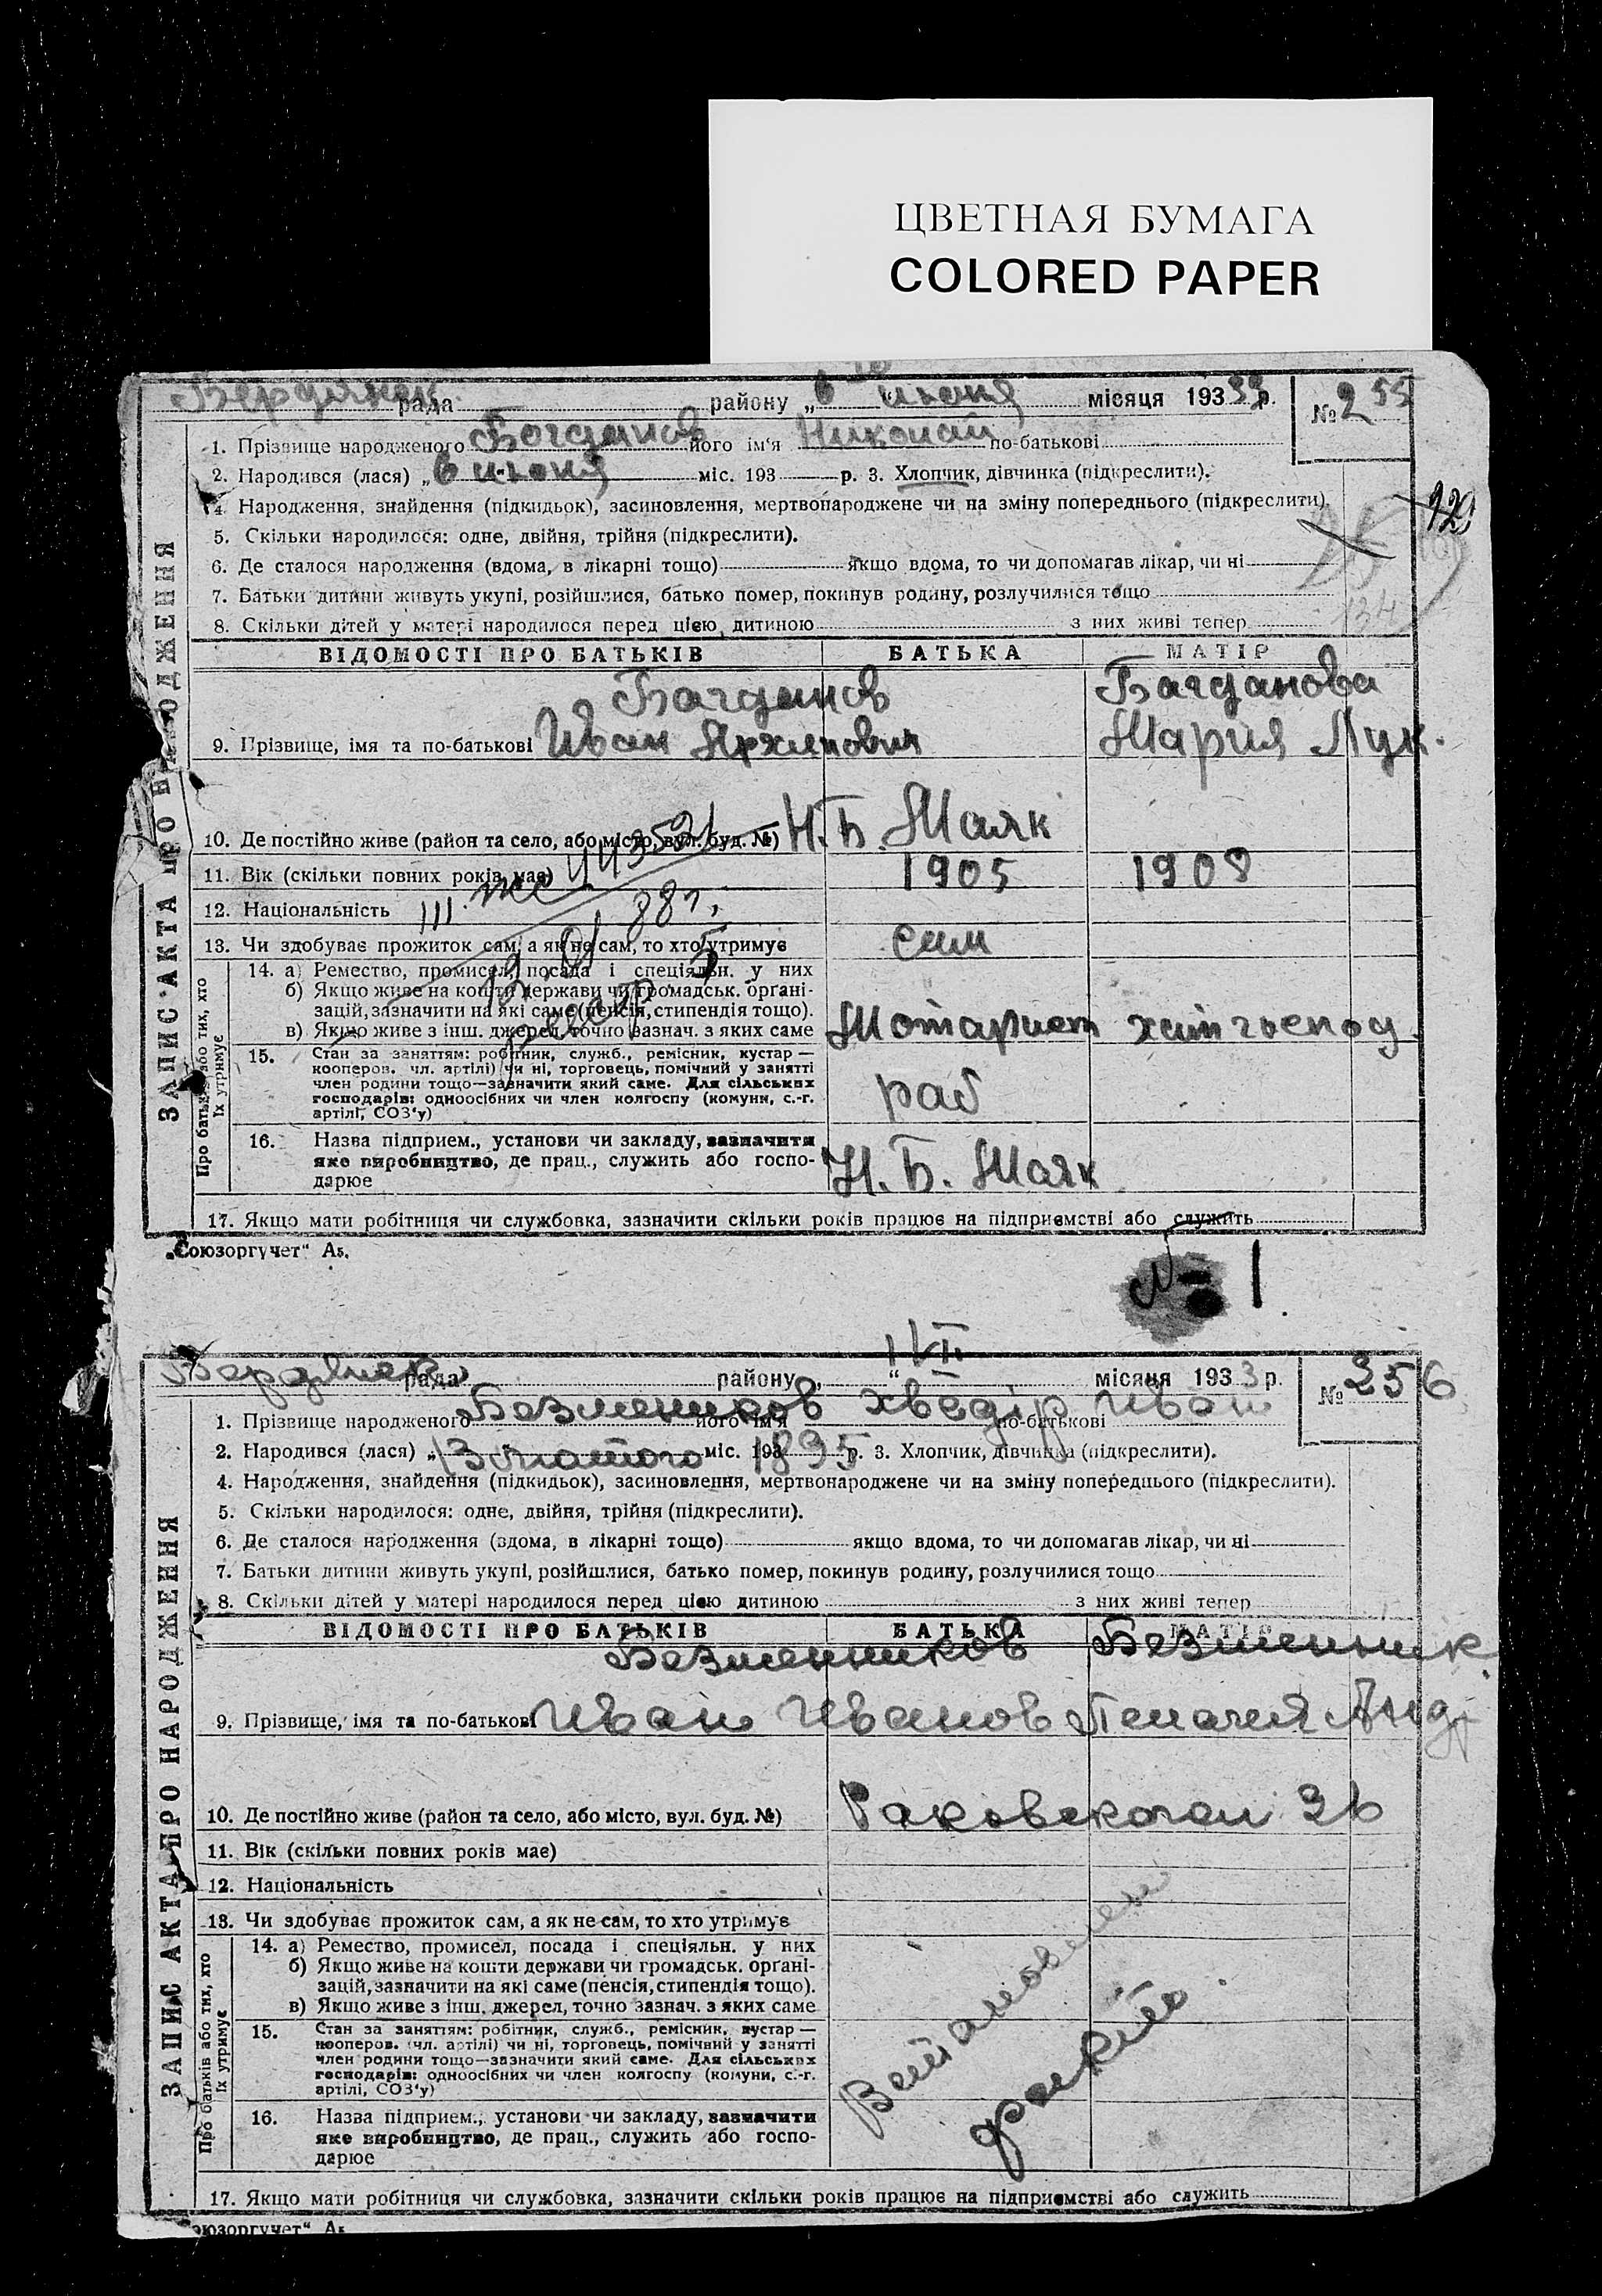 ЦВЕТНАЯ БУМАГА
COLORED PAPER
Бердянск. рада району „6“ июня місяця 1933 р. № 255
1. Прізвище народженого Богданов його ім‘я Николай по-батькові
2. Народився (лася) „6 июня міс. 193 р. 3. Хлопчик, дівчинка (підкреслити).
4. Народження, знайдення (підкидьок), засиновлення, мертвонароджене чи на зміну попереднього (підкреслити).
129
5. Скільки народилося: одне, двійня, трійня (підкреслити).
6. Де сталося народження (вдома, в лікарні тощо) якщо вдома, то чи допомагав лікар, чи ні
7. Батьки дитини живуть укупі, розійшлися, батько помер, покинув родину, розлучилися тощо
134
8. Скільки дітей у матері народилося перед цією дитиною з них живі тепер
ЗАПИС АКТА ПРО НАРОДЖЕННЯ
ВІДОМОСТІ ПРО БАТЬКІВ БАТЬКА МАТІР
Багданов Багданова
9. Прізвище, імя та по-батькові Иван Архипович Мария Лук.
10. Де постійно живе (район та село, або місто, вул. буд. №) Н.Б. Маяк
11. Вік (скільки повних років має) 1905 1908
III 443521
12. Національність
88г.
13. Чи здобуває прожиток сам, а як не сам, то хто утримує сам
Про батьків або тих, хто їх утримує
14. а) Ремество, промисел, посада і спеціяльн. у них
б) Якщо живе на кошти держави чи громадськ. орґані-
зацій, зазначити на які саме (пенсія, стипендія тощо).
в) Якщо живе з інш. джерел, точно зазнач. з яких саме Мотарист
15. Стан за заняттям: робітник, служб., ремісник, кустар —
кооперов. чл. артілі) чи ні, торговець, помічний у занятті
член родини тощо—зазначити який саме. Для сільських
господарів: одноосібних чи член колгоспу (комуни, с.-г.
артілі, СОЗ‘у) раб
16. Назва підприєм., установи чи закладу, зазначити
яке виробництво, де прац., служить або госпо-
дарює Н.Б. Маяк
17. Якщо мати робітниця чи службовка, зазначити скільки років працює на підприємстві або служить
„Союзоргучет“
№ 1.
1/VI
Бердянск. рада району „ “ місяця 1933 р. № 256
1. Прізвище народженого Безменников його ім‘я Хведір по-батькові Иван
2. Народився (лася) „ міс. 1895 р. 3. Хлопчик, дівчинка (підкреслити).
4. Народження, знайдення (підкидьок), засиновлення, мертвонароджене чи на зміну попереднього (підкреслити).
5. Скільки народилося: одне, двійня, трійня (підкреслити).
6. Де сталося народження (вдома, в лікарні тощо) якщо вдома, то чи допомагав лікар, чи ні
7. Батьки дитини живуть укупі, розійшлися, батько помер, покинув родину, розлучилися тощо
8. Скільки дітей у матері народилося перед цією дитиною з них живі тепер
ЗАПИС АКТА ПРО НАРОДЖЕННЯ
ВІДОМОСТІ ПРО БАТЬКІВ БАТЬКА МАТІР
Безменников Безменник.
9. Прізвище, імя та по-батькові Иван Иванов Пелагея Анд
10. Де постійно живе (район та село, або місто, вул. буд. №) 36
11. Вік (скільки повних років має)
12. Національність
13. Чи здобуває прожиток сам, а як не сам, то хто утримує
Про батьків або тих, хто їх утримує
14. а) Ремество, промисел, посада і спеціяльн. у них
б) Якщо живе на кошти держави чи громадськ. орґані-
зацій, зазначити на які саме (пенсія, стипендія тощо).
в) Якщо живе з інш. джерел, точно зазнач. з яких саме
15. Стан за заняттям: робітник, служб., ремісник, кустар —
кооперов. чл. артілі) чи ні, торговець, помічний у занятті
член родини тощо—зазначити який саме. Для сільських
господарів: одноосібних чи член колгоспу (комуни, с.-г.
артілі, СОЗ‘у)
16. Назва підприєм., установи чи закладу, зазначити
яке виробництво, де прац., служить або госпо-
дарює
17. Якщо мати робітниця чи службовка, зазначити скільки років працює на підприємстві або служить
оюзоргучет“